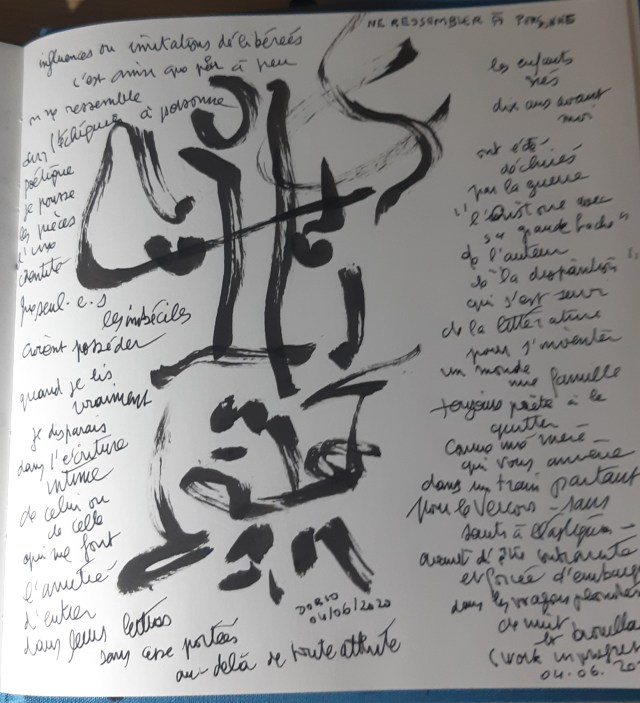 NE RESSEMBLER À PERSONNE
influences ou imitations délibérées
c'est ainsi que peu à peu
on ne ressemble
à personne
dans l'échiquier
poétique
je pousse
les pièces
d'une
identité
que seul.e.s
les imbéciles
croient posséder
quand je lis
vraiment
je disparais
dans l'écriture
intime
de celui ou
de celle
qui me font
l'amitié
d'entrer
dans leurs lettres
sans cesse portées
au-delà de toute attente
DORIO
04/06/2020
les enfants
nés
dix ans avant
moi
ont été
déchirés
par la guerre
"l'Histoire avec
sa grande hache"
de l'auteur
de la disparition
qui s'est servi
de la littérature
pour s'inventer
un monde
une famille
toujours prête à le
quitter
comme ma mère –
qui vous amène
dans un train partant
pour le Vercors – sans
savoir l'expliquer –
avant d'être contrainte
et forcée d'embarquer
dans les wagons plombés
de nuit
et brouillard
(work in progress
04.06.20